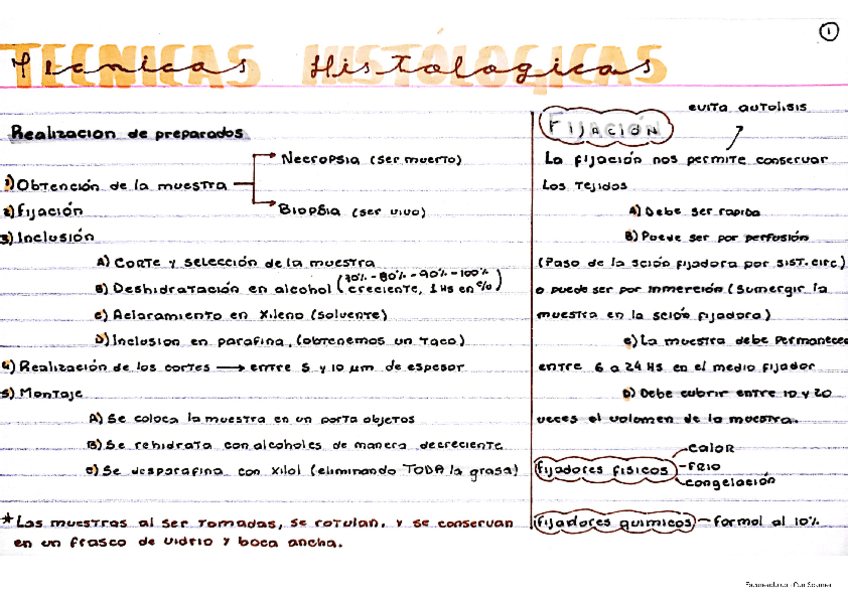 1
TECNICAS HISTOLOGICAS
Tecnicas Histologicas
Realizacion de preparados
1) Obtención de la muestra
Necropsia (ser muerto)
Biopsia (ser vivo)
2) fijación
3) Inclusión
A) Corte y selección de la muestra
B) Deshidratación en alcohol (70% - 80% - 90% - 100% creciente, 1 Hs en c/)
c) Aclaramiento en Xileno (solvente)
D) Inclusion en parafina, (obtenemos un Taco)
4) Realización de los cortes → entre 5 y 10 μm de espesor
5) Montaje
A) Se coloca la muestra en un porta objetos
B) Se rehidrata con alcoholes de manera decreciente
c) Se desparafina con xilol (eliminando TODA la grasa)
* Las muestras al ser tomadas, se rotulan, y se conservan
en un frasco de vidrio y boca ancha.
evita autolisis
FIJACIÓN
La fijación nos permite conservar
los Tejidos
A) Debe ser rapida
B) Puede ser por perfusión
(Paso de la sción fijadora por sist. circ)
o puede ser por inmerción (Sumergir la
muestra en la sción fijadora)
c) La muestra debe Permanecer
entre 6 a 24 Hs en el medio fijador
D) Debe cubrir entre 10 y 20
veces el volumen de la muestra.
fijadores fisicos
calor
Frio
congelación
fijadores quimicos - formol al 10%